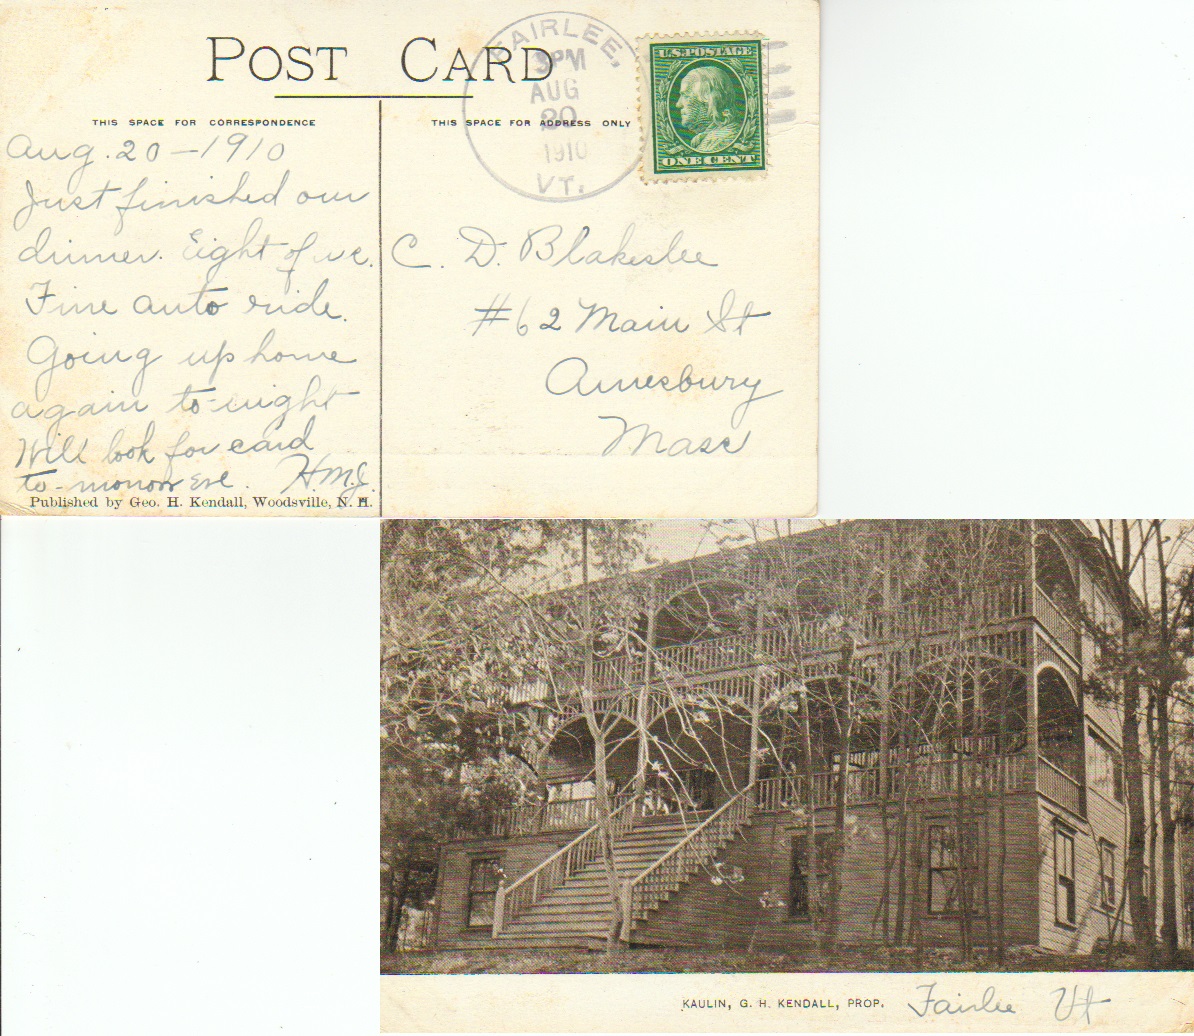 POST CARD
THIS SPACE FOR CORRESPONDENCE
THIS SPACE FOR ADDRESS ONLY
FAIRLEE,
3PM
AUG
20
1910
VT.
U.S. POSTAGE
ONE CENT
Aug. 20 - 1910
Just finished our
dinner. Eight of us.
Fine auto ride.
Going up home
again to-night
Will look for card
to-morrow eve. H.M.J.
Published by Geo. H. Kendall, Woodsville, N. H.
C. D. Blakeslee
#62 Main St
Amesbury
Mass
KAULIN, G. H. KENDALL, PROP. Fairlee Vt